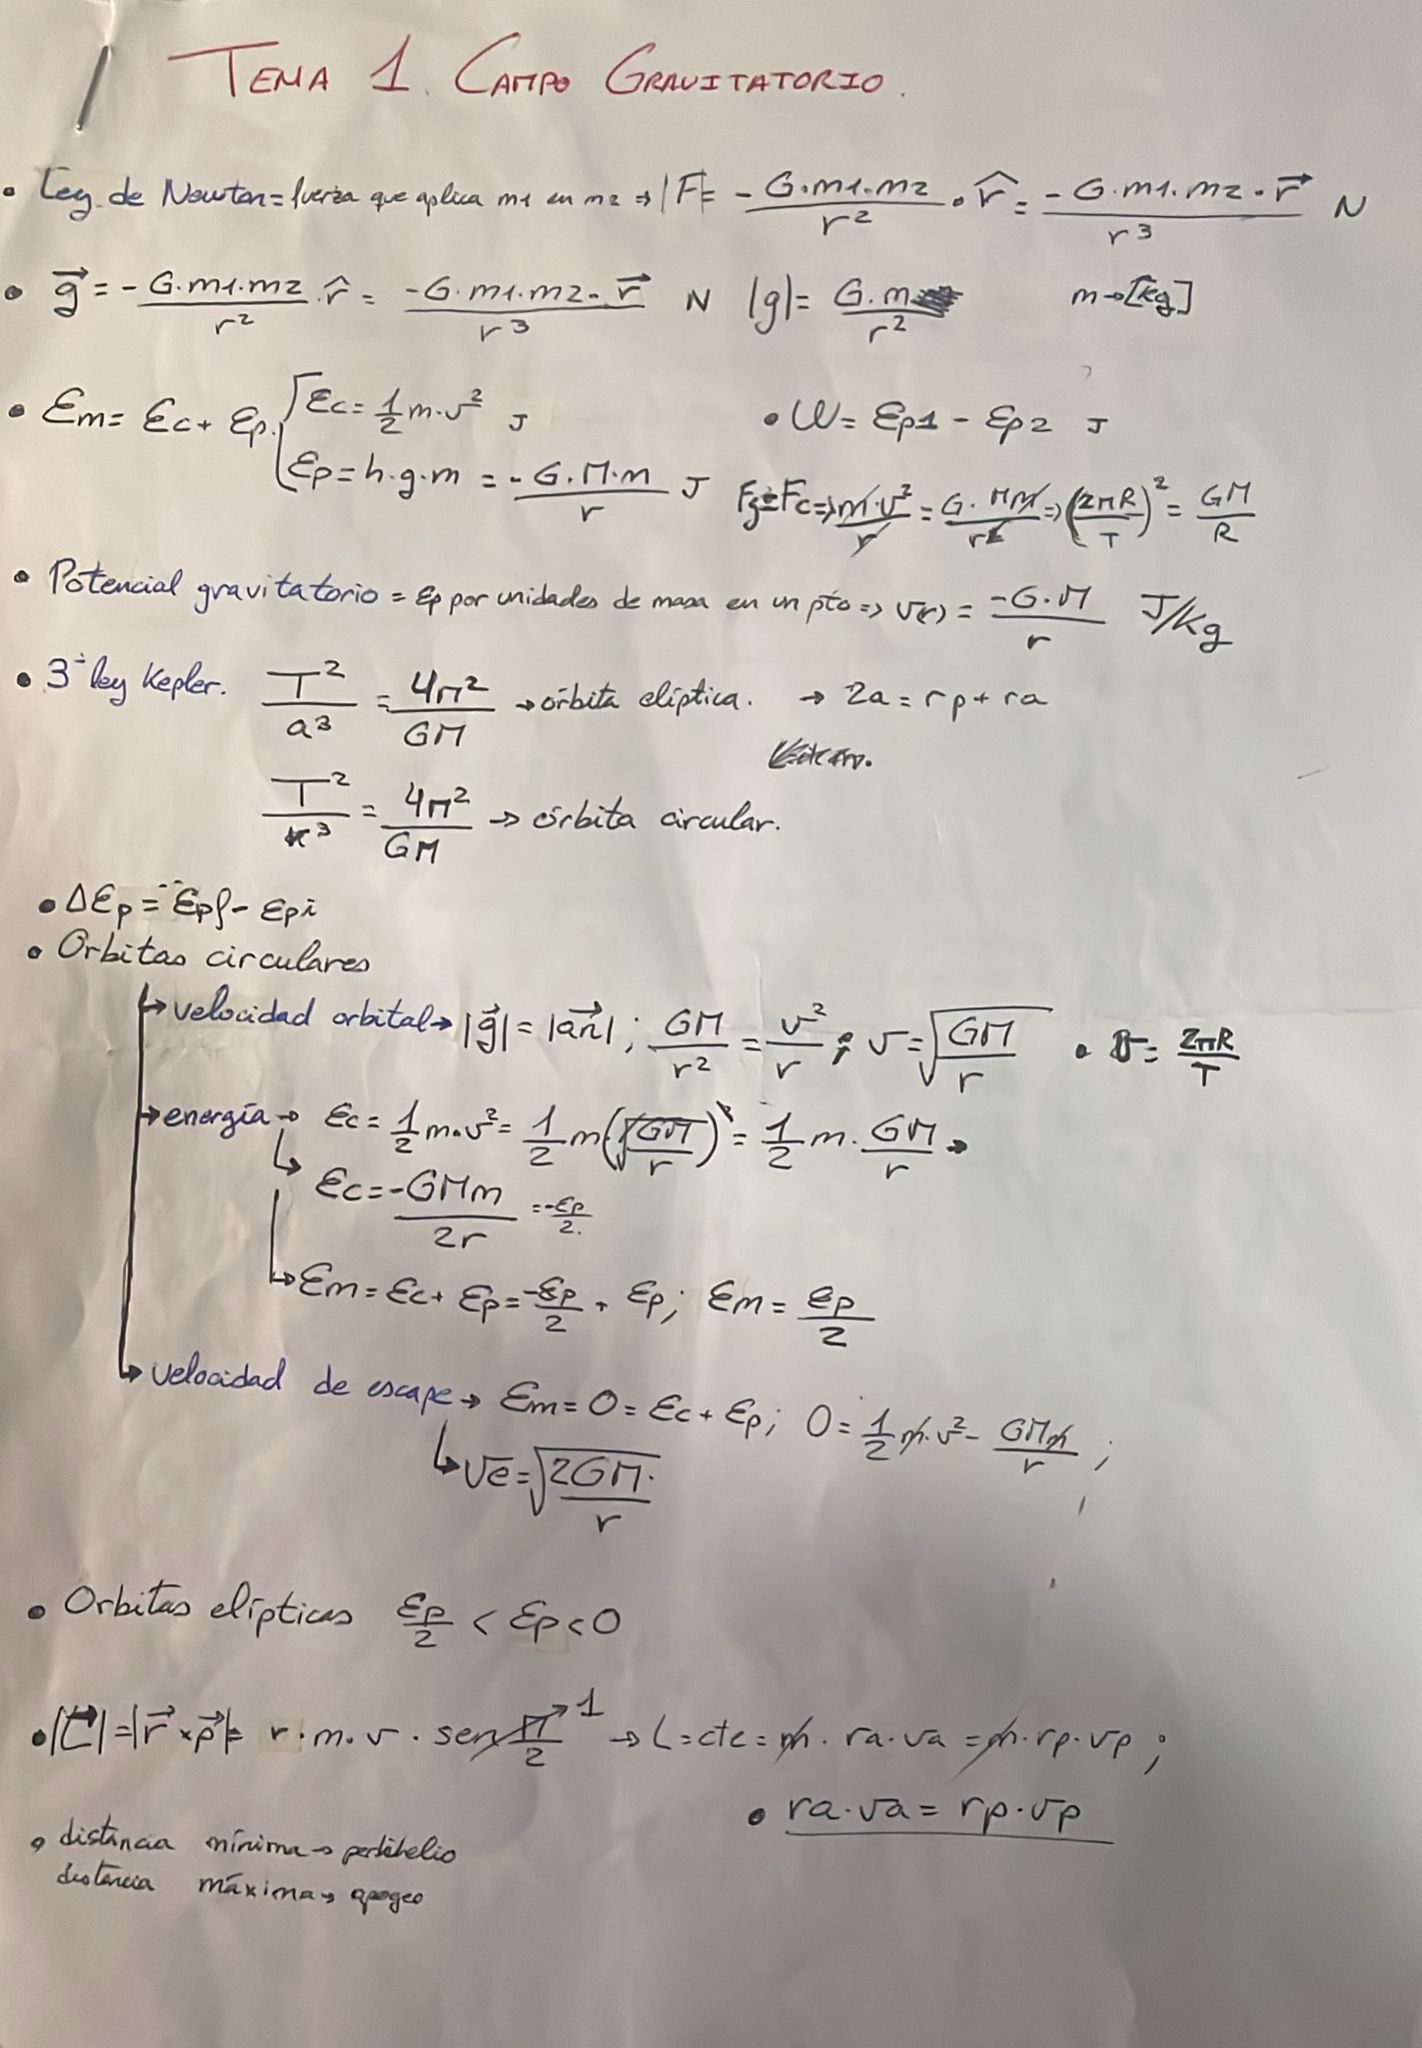 TEMA 1. CAMPO GRAVITATORIO.
• Ley de Newton = fuerza que aplica m1 en m2 → |F| = -G·m1·m2/r² · r̂ = -G·m1·m2·r⃗/r³ N
• g⃗ = -G·m1·m2/r² · r̂ = -G·m1·m2·r⃗/r³ N |g| = G·m/r² m→[kg]
• Em = Ec + Ep. Ec = 1/2 m·v² J • W = Ep1 - Ep2 J
Ep = h·g·m = -G·M·m/r J Fg = Fc ⇒ m·v²/r = G·Mm/r² ⇒ (2πR/T)² = GM/R
• Potencial gravitatorio = Ep por unidades de masa en un pto ⇒ V(r) = -G·M/r J/kg
• 3ª ley Kepler. T²/a³ = 4π²/GM → órbita elíptica. → 2a = rp + ra
T²/r³ = 4π²/GM → órbita circular.
• ΔEp = Epf - Epi
• Orbitas circulares
→ velocidad orbital → |g⃗| = |an⃗|; GM/r² = v²/r; v = √(GM/r) • v = 2πR/T
→ energía → Ec = 1/2 m·v² = 1/2 m(√(GM/r))² = 1/2 m·GM/r →
↳ Ec = -GMm/2r = -Ep/2.
↳ Em = Ec + Ep = -Ep/2 + Ep; Em = Ep/2
→ velocidad de escape → Em = 0 = Ec + Ep; 0 = 1/2 m·v² - GMm/r;
↳ Ve = √(2GM·/r)
• Orbitas elípticas Ep/2 < Ep < 0
• |L⃗| = |r⃗ × p⃗| = r·m·v·sen π/2 1 → L = cte = m·ra·va = m·rp·vp;
• ra·va = rp·vp
• distancia mínima →
distancia máxima → apogeo